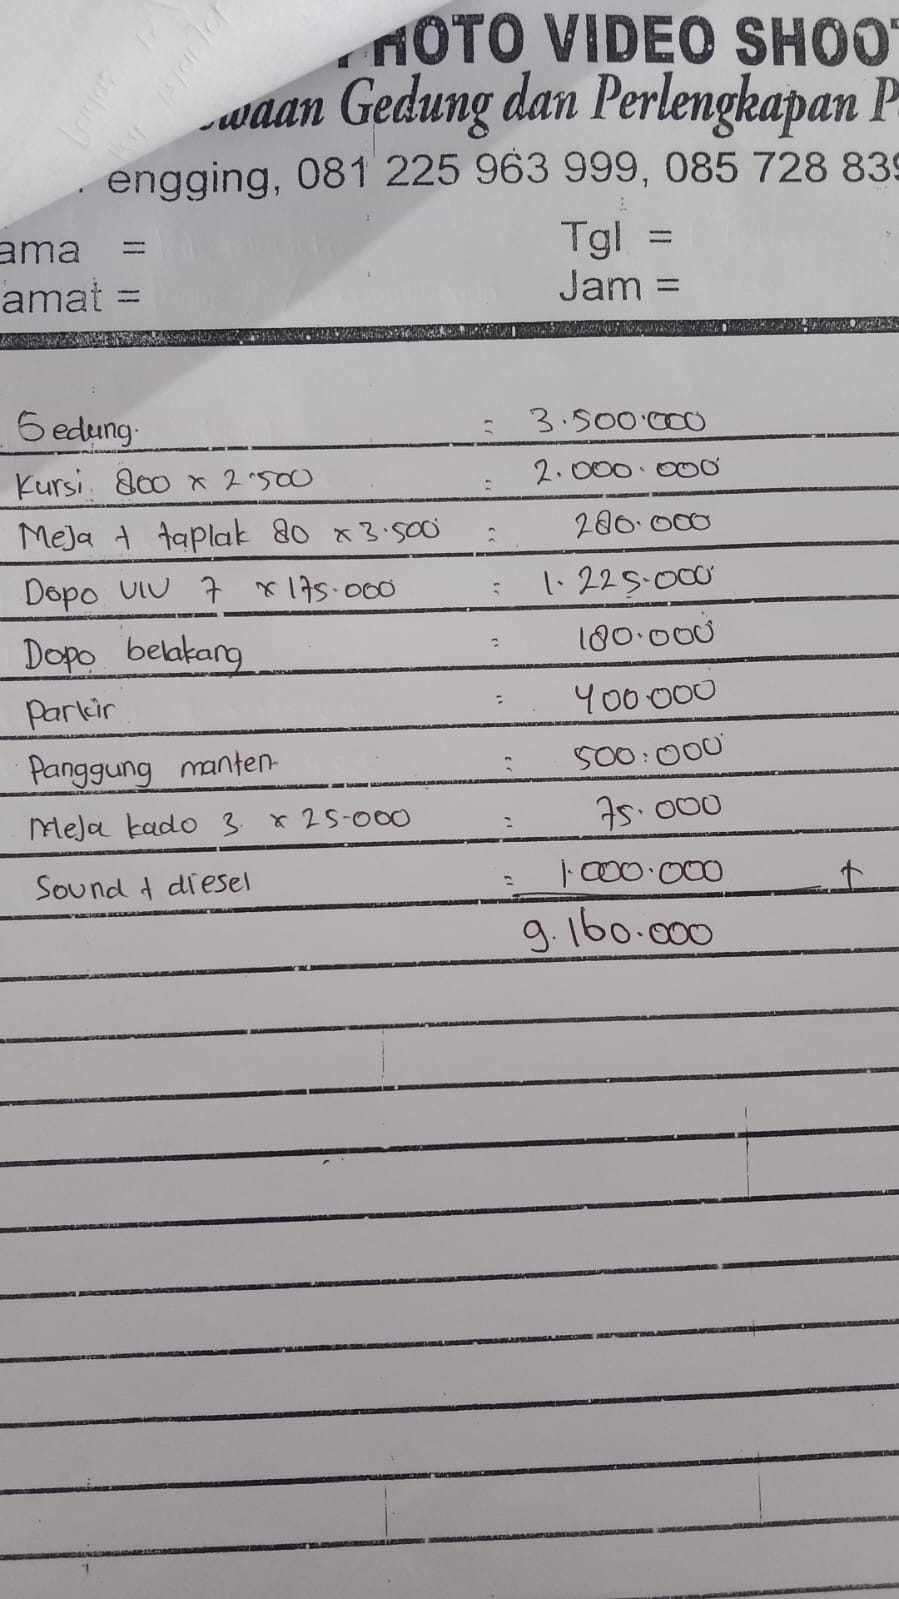 PHOTO VIDEO SHOO
waan Gedung dan Perlengkapan P
engging, 081 225 963 999, 085 728 839
ama = Tgl =
amat = Jam =
Gedung. = 3.500.000
Kursi. 800 x 2.500 = 2.000.000
Meja + taplak 80 x 3.500 = 280.000
Dopo VIV 7 x 175.000 = 1.225.000
Dopo belakang = 180.000
Parkir = 400.000
Panggung manten = 500.000
Meja kado 3 x 25.000 = 75.000
Sound + diesel = 1.000.000 +
9.160.000